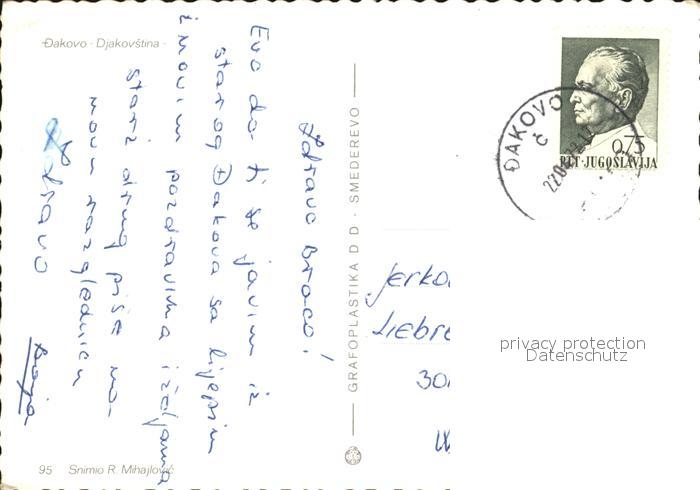 Đakovo · Djakovština ·
Zdravo Braco!
Evo da ti se javim iz
starog Đakova sa lijepim
i novim pozdravima i željama
stari drug piše no-
vom razglednicu
Zdravo
GRAFOPLASTIKA D D · SMEDEREVO
95 Snimio R. Mihajlović
ĐAKOVO
č
0,75
PTT·JUGOSLAVIJA
Jerko
Liebre
30
privacy protection
Datenschutz